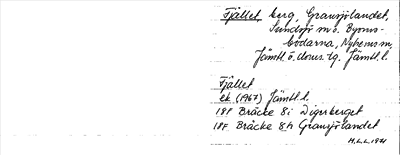 Fjället berg, Gransjölandet,
Sundsjö m.o. Byoms-
bodarna, Nyhems sn,
Jämtl. ö. doms. tg. Jämtl. l.
Fjället
ek (1967) Jämtl. l.
18F Bräcke 8i Digerberget
18F Bräcke 8h Gransjölandet
M.L.L. 1971